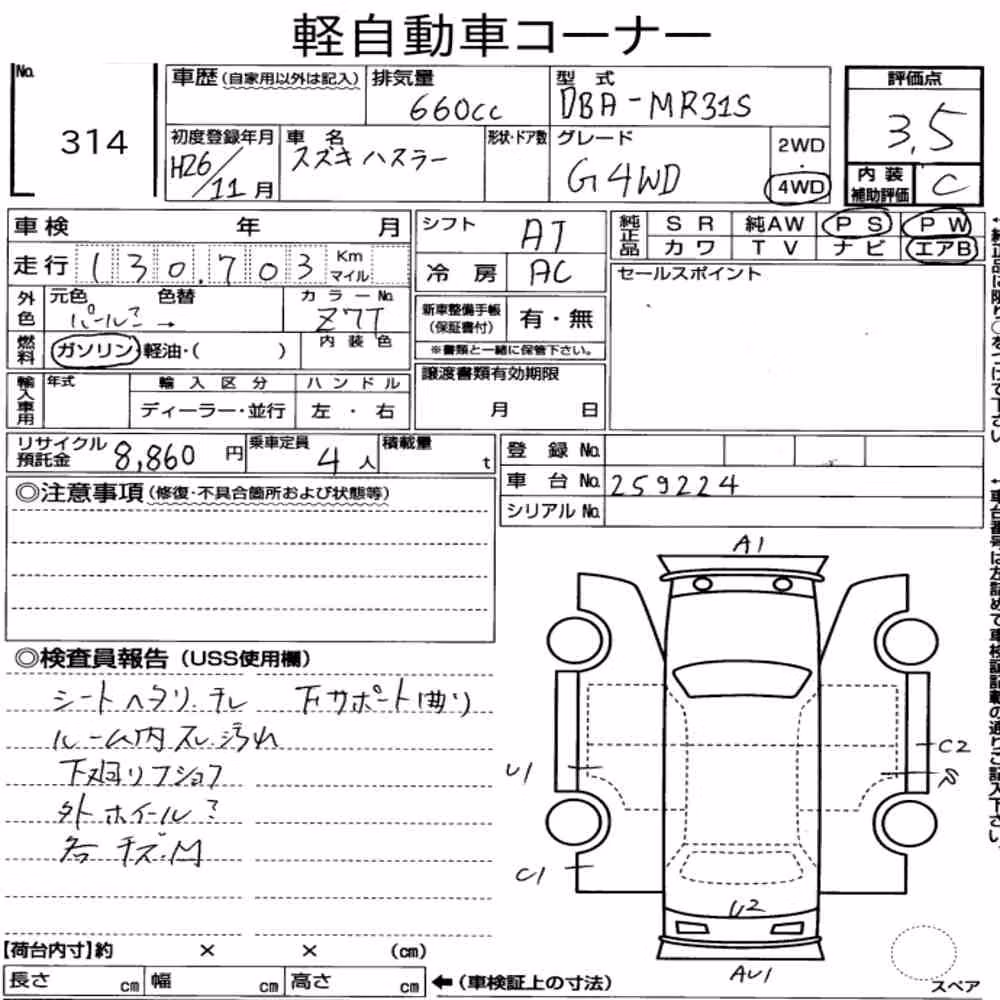 軽自動車コーナー
No.
314
車歴(自家用以外は記入)
排気量
660cc
型式
DBA-MR31S
評価点
3.5
初度登録年月
H26/11月
車名
スズキ ハスラー
形状・ドア数
グレード
G4WD
2WD
・
4WD
内装
補助評価
C
車検 年 月
走行 130,703 Km
マイル
外色
元色 色替
パール? →
カラーNo.
Z7T
燃料
ガソリン・軽油・( )
内装色
輸入車用
年式
輸入区分
ディーラー・並行
ハンドル
左・右
シフト AT
冷房 AC
新車整備手帳
(保証書付)
有・無
※書類と一緒に保管下さい。
譲渡書類有効期限
月 日
純正品
SR 純AW PS PW
カワ TV ナビ エアB
セールスポイント
リサイクル
預託金 8,860 円
乗車定員
4人
積載量
t
登録No.
車台No. 259224
シリアルNo.
◎注意事項(修復・不具合箇所および状態等)
◎検査員報告(USS使用欄)
シートヘタリ、チレ 下サポート(曲り)
ルーム内スレ、汚れ
下廻リフショフ
外ホイール?
各キズ、凹
A1
C2
U1
C1
U2
AU1
【荷台内寸】約 × × (cm)
長さ cm 幅 cm 高さ cm ←(車検証上の寸法)
スペア